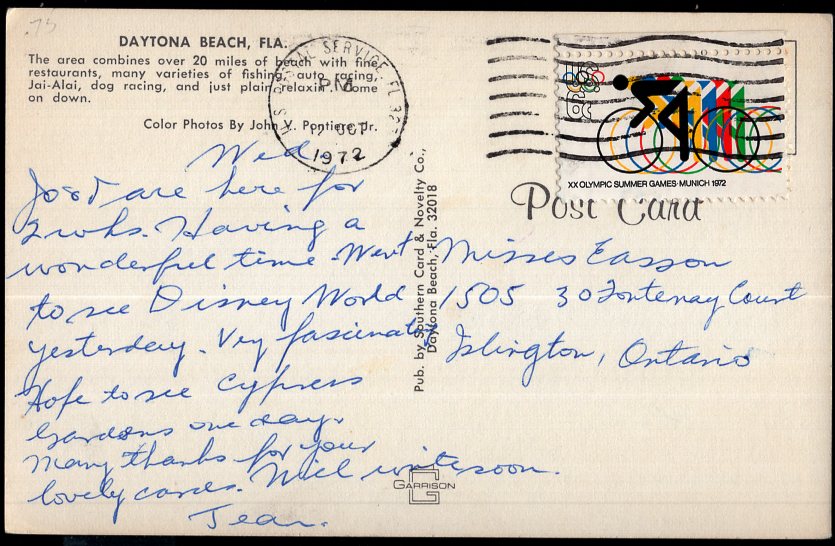 .75
DAYTONA BEACH, FLA.
The area combines over 20 miles of beach with fine
restaurants, many varieties of fishing, auto racing,
Jai-Alai, dog racing, and just plain relaxin'. Come
on down.
Color Photos By John V. Pontiere Jr.
U.S. POSTAL SERVICE, FL
PM
OCT
1972
XX OLYMPIC SUMMER GAMES·MUNICH 1972
Post Card
Wed.
are here for
2 wks. Having a
wonderful time. Went
to see Disney World
yesterday. Very fascinating
Hope to see Cypress
Gardens one day.
Many thanks for your
lovely cards. Will write soon.
Jean.
Pub. by Southern Card & Novelty Co.,
Daytona Beach, Fla. 32018
Misses Easson
1505 30 Fontenay Court
Islington, Ontario
GARRISON